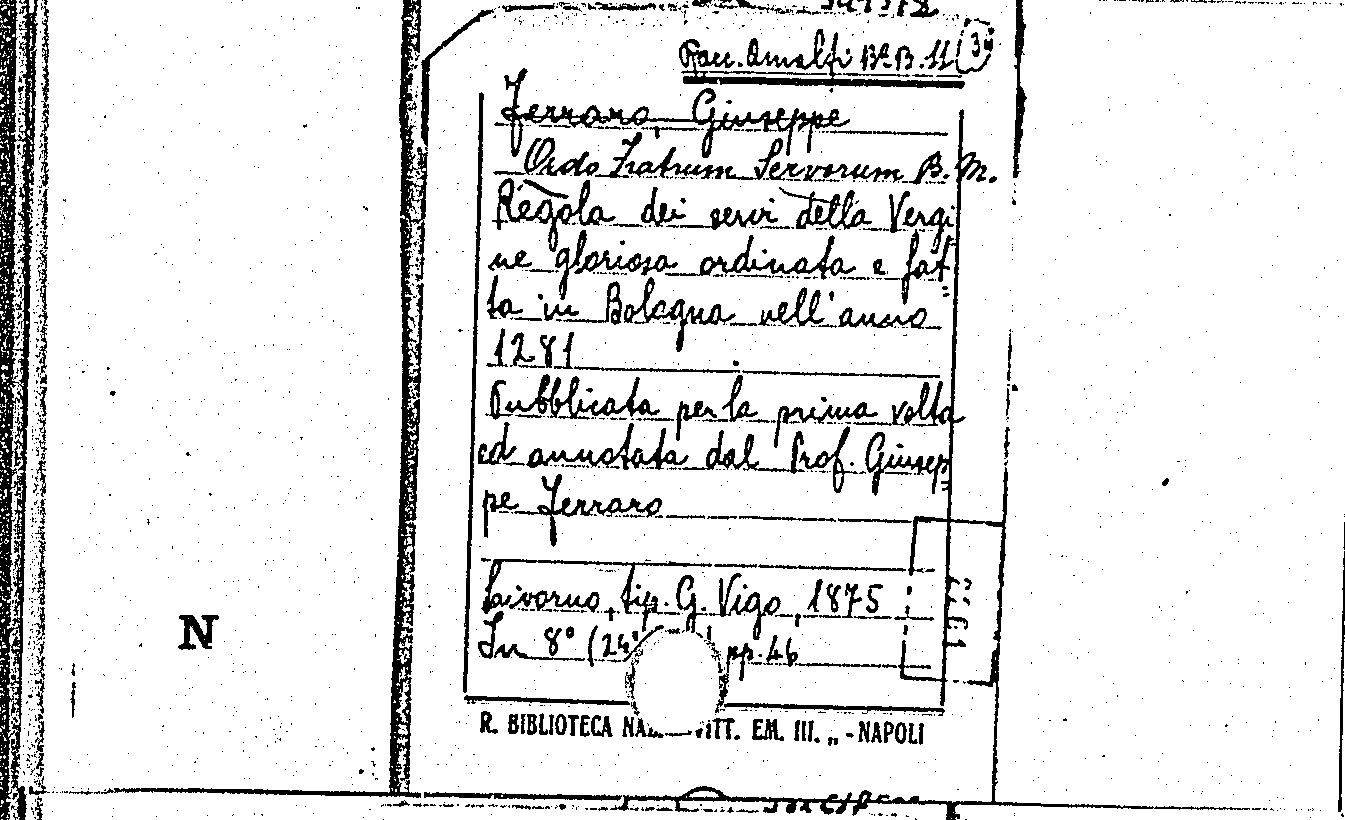 Racc. Amalfi Bª B. 11 (3
Ferraro, Giuseppe
Ordo Fratrum Servorum B. M.
Regola dei servi della Vergi
ne gloriosa ordinata e fat=
ta in Bologna nell'anno
1281
Pubblicata per la prima volta
ed annotata dal Prof. Giusep=
pe Ferraro
Livorno, tip. G. Vigo, 1875
In 8° (24° pp. 46
N
R. BIBLIOTECA NAZ. VITT. EM. III. „ - NAPOLI